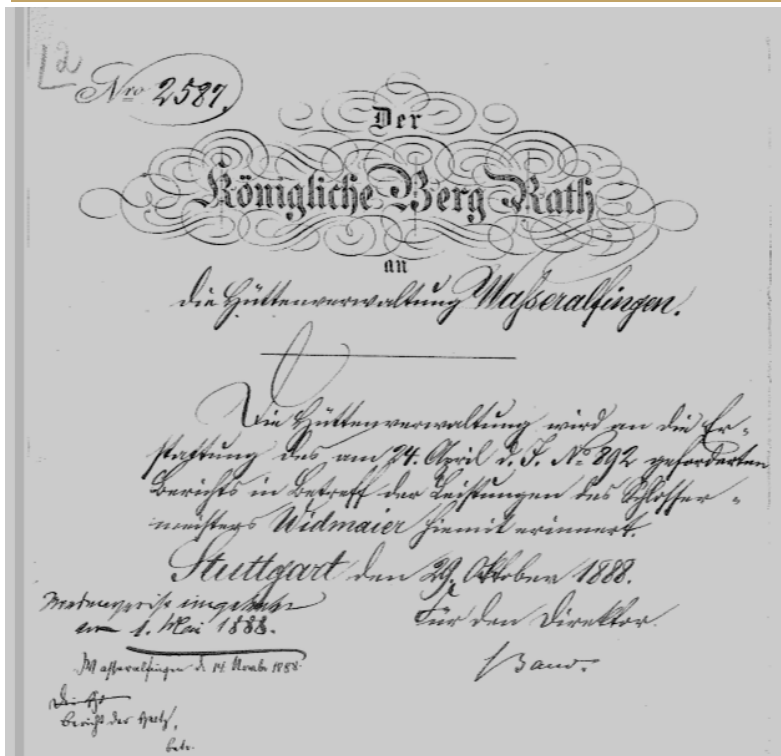 Nro 2587.
Der
Königliche Berg Rath
an
die Hüttenverwaltung Wasseralfingen.
Die Hüttenverwaltung wird an die Er-
stattung des am 24. April d. J. No 892 geforderten
Berichts in Betreff der Leistungen des Schlosser-
meisters Widmaier hiemit erinnert.
Stuttgart den 29. Oktober 1888.
Für den Direktor.
am 1. Mai 1888.
Wasseralfingen d. 14. Novbr 1888.
Bericht der
betr.